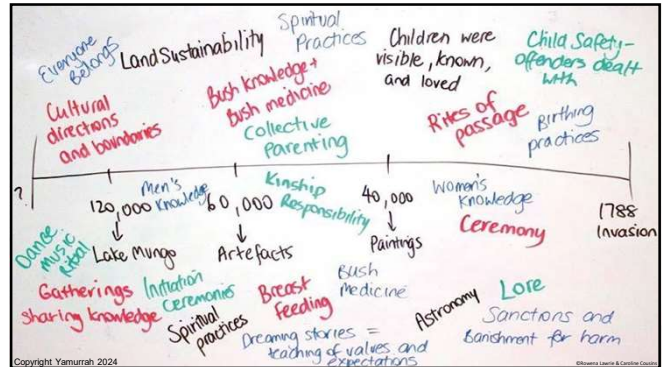 Everyone
Belongs
Land Sustainability
Spiritual
Practices
Children were
visible, known,
and loved
Child Safety-
offenders dealt
with
Cultural
directions
and boundaries
Bush knowledge +
Bush medicine
Collective
Parenting
Rites of
passage
Birthing
practices
?
120,000
Men's
Knowledge
60,000
Kinship
Responsibility
40,000
Women's
Knowledge
Ceremony
1788
Invasion
Dance
Music
Ritual
Lake Mungo
Artefacts
Paintings
Gatherings
Sharing knowledge
Initiation
Ceremonies
Spiritual
practices
Breast
Feeding
Bush
Medicine
Dreaming stories =
teaching of values and
expectations
Astronomy
Lore
Sanctions and
Banishment for harm
Copyright Yamurrah 2024
©Rowena Lawrie & Caroline Cousins